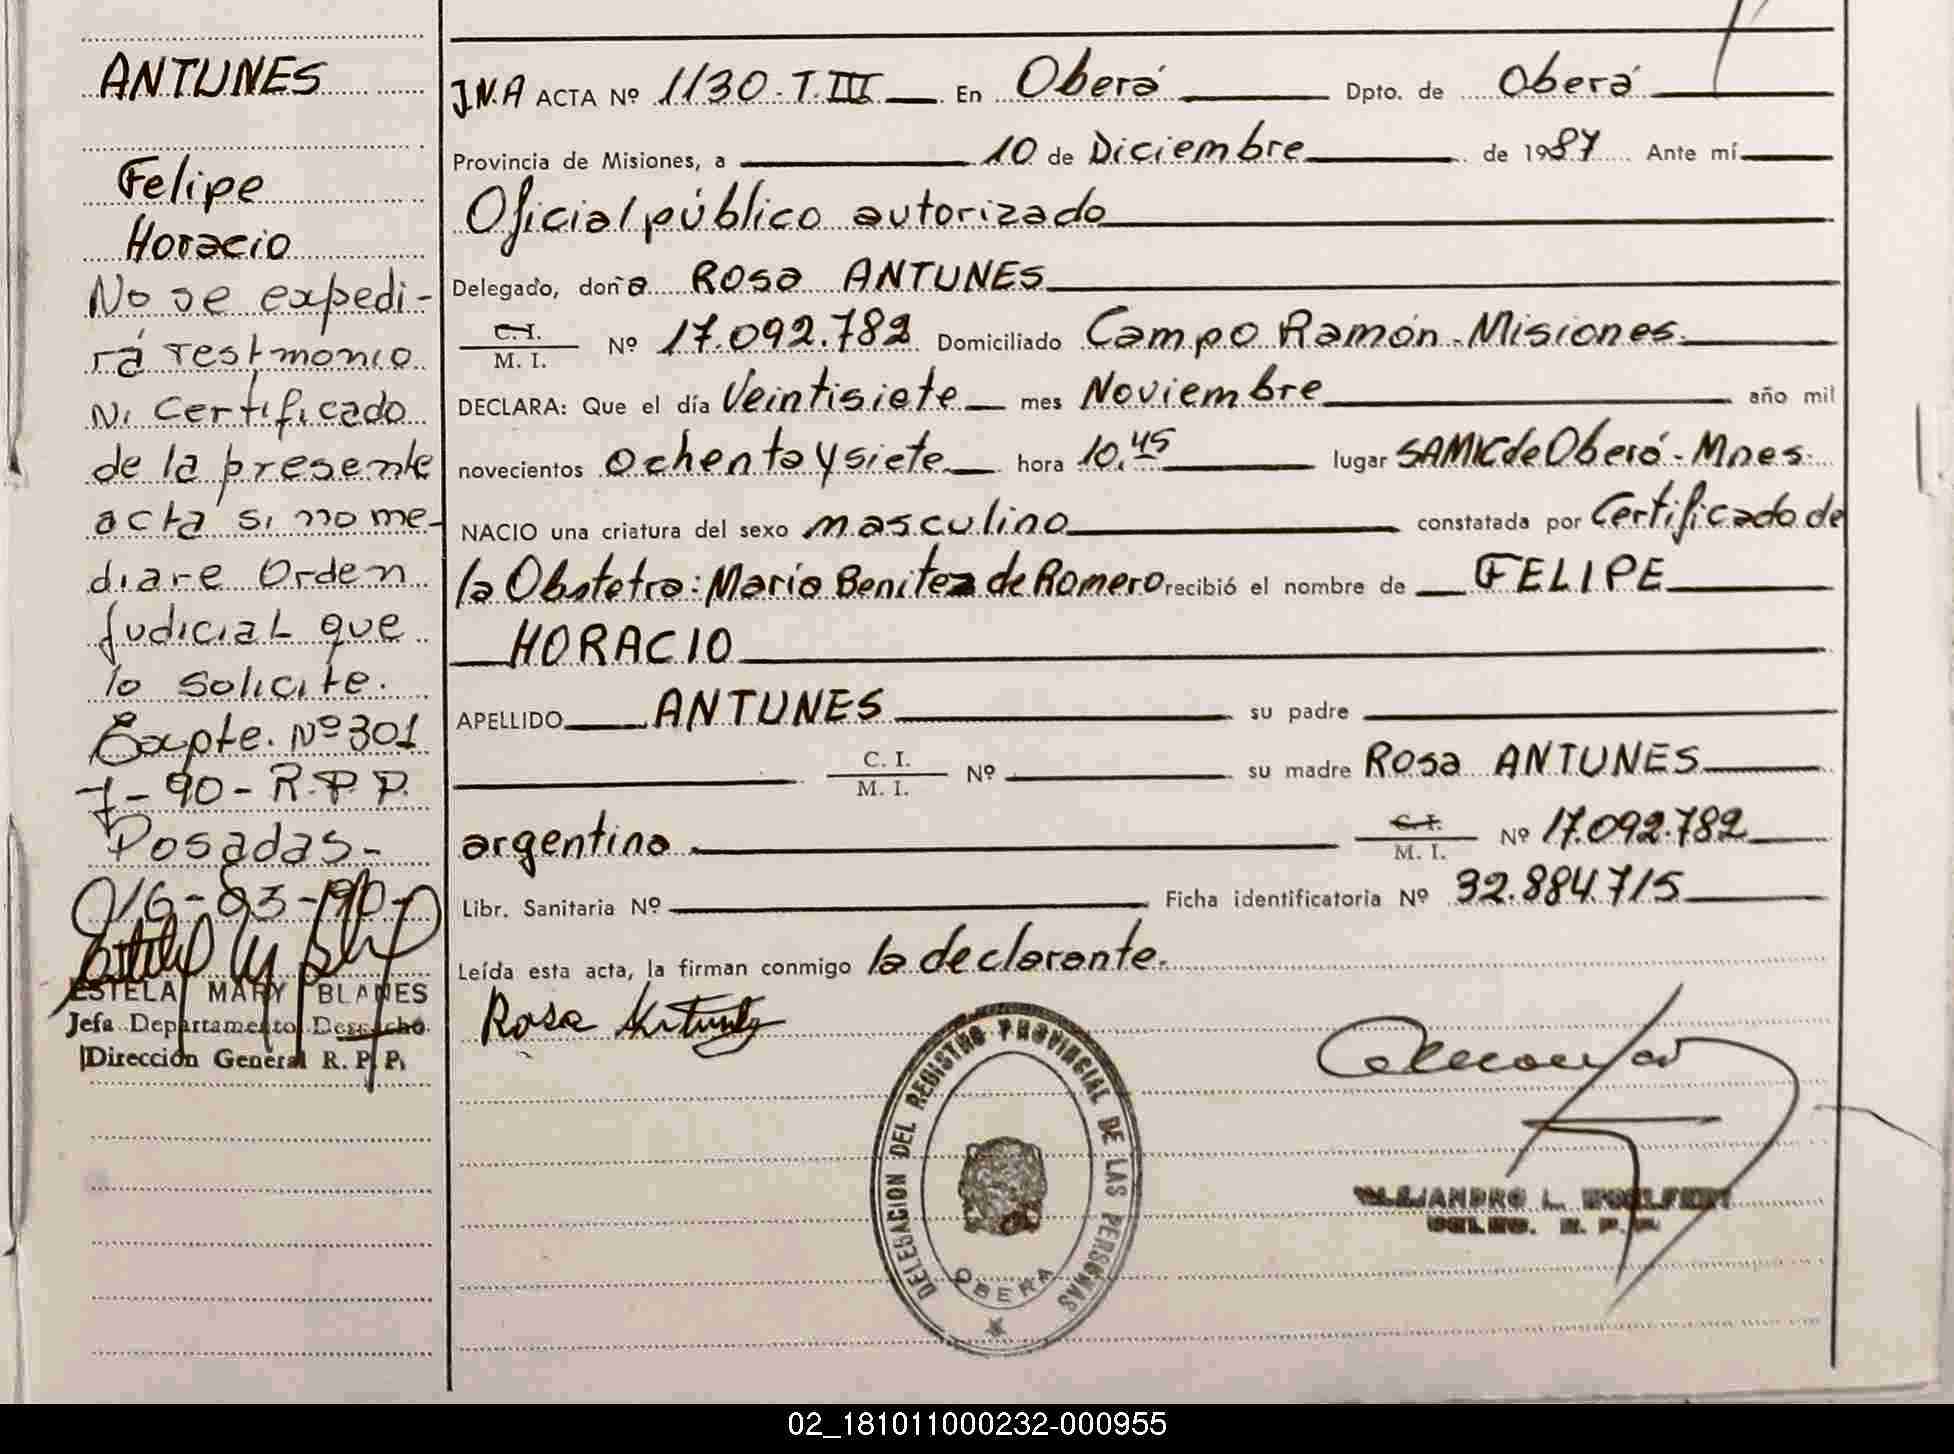 ANTUNES
Felipe
Horacio
No se expedi-
rá Testimonio
Ni Certificado
de la presente
acta si no me-
diare Orden
Judicial que
lo solicite.
Expte. Nº 301
7-90-R.P.P.
Posadas-
ESTELA MARY BLANES
Jefa Departamento Despacho
Dirección General R. P. P.
J.N.A ACTA Nº 1130-T.III En Oberá Dpto. de Oberá
Provincia de Misiones, a 10 de Diciembre de 1987 Ante mí
Oficial público autorizado
Delegado, doña Rosa ANTUNES
C.I.
M. I. Nº 17.092.782 Domiciliado Campo Ramón-Misiones.
DECLARA: Que el día Veintisiete mes Noviembre año mil
novecientos ochenta y siete hora 10,45 lugar SAMIC de Oberá-Mnes.
NACIO una criatura del sexo masculino constatada por Certificado de
la Obstetra: María Benitez de Romero recibió el nombre de FELIPE
HORACIO
APELLIDO ANTUNES su padre
C. I.
M. I. Nº su madre Rosa ANTUNES
argentina C.I.
M. I. Nº 17.092.782
Libr. Sanitaria Nº Ficha identificatoria Nº 32.884.715
Leída esta acta, la firman conmigo la declarante.
Rosa Antunes
DELEGACION DEL REGISTRO PROVINCIAL DE LAS PERSONAS
OBERA
ALEJANDRO L.
R. P. P.
02_181011000232-000955